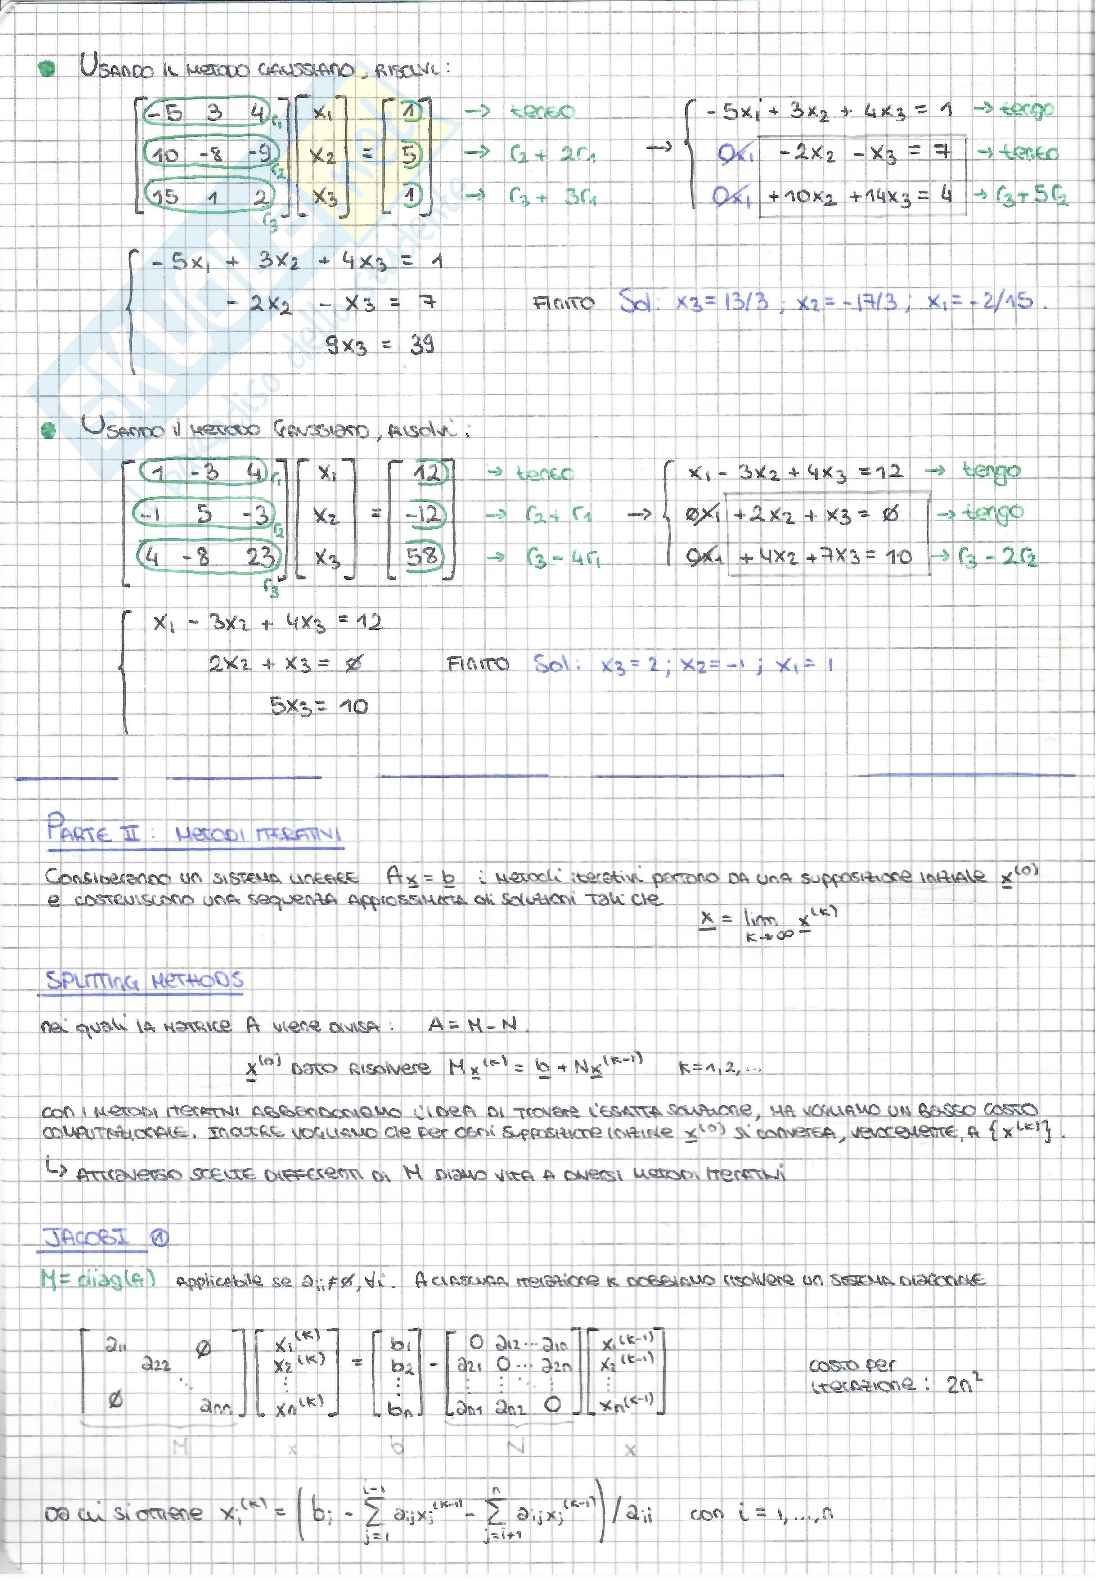 USANDO IL METODO GAUSSIANO, RISOLVI:
[-5 3 4] r1 [x1] [1] → tengo → { -5x1 + 3x2 + 4x3 = 1 → tengo
[10 -8 -9] r2 [x2] = [5] → r2 + 2r1 0x1 -2x2 - x3 = 7 → tengo
[15 1 2] r3 [x3] [1] → r3 + 3r1 0x1 +10x2 +14x3 = 4 → r3+5r2
{ -5x1 + 3x2 + 4x3 = 1
- 2x2 - x3 = 7 FINITO Sol: x3 = 13/3 ; x2 = -17/3 ; x1 = -2/15.
9x3 = 39
USANDO il METODO GAUSSIANO, RISOLVI:
[1 -3 4] r1 [x1] [12] → tengo → { x1 - 3x2 + 4x3 = 12 → tengo
[-1 5 -3] r2 [x2] = [-12] → r2 + r1 0x1 +2x2 + x3 = ∅ → tengo
[4 -8 23] r3 [x3] [58] → r3 - 4r1 0x1 + 4x2 + 7x3 = 10 → r3 - 2r2
{ x1 - 3x2 + 4x3 = 12
2x2 + x3 = ∅ FINITO Sol: x3 = 2 ; x2 = -1 ; x1 = 1
5x3 = 10
PARTE II : METODI ITERATIVI
CONSIDERANDO UN SISTEMA LINEARE Ax = b i METODI iterativi partono DA UNA SUPPOSIZIONE INIZIALE x^(0)
e COSTRUISCONO UNA sequenza APPROSSIMATA di SOLUZIONI TALI CHE
x = lim k→∞ x^(k)
SPLITTING METHODS
nei quali LA MATRICE A viene DIVISA : A = M - N.
x^(0) DATO RISOLVERE Mx^(k) = b + Nx^(k-1) k = 1, 2, ...
CON I METODI ITERATIVI ABBANDONIAMO L'IDEA DI TROVARE L'ESATTA SOLUZIONE, MA VOGLIAMO UN BASSO COSTO
COMPUTAZIONALE. INOLTRE VOGLIAMO CHE PER OGNI SUPPOSIZIONE INIZIALE x^(0) SI CONVERGA, VELOCEMENTE, A {x^(k)}.
↳ ATTRAVERSO SCELTE DIFFERENTI DI M DIAMO VITA A DIVERSI METODI ITERATIVI
JACOBI ①
M = diag(A) Applicabile se aii ≠ ∅, ∀i. A CIASCUNA ITERAZIONE K DOBBIAMO RISOLVERE UN SISTEMA DIAGONALE
[a11 ∅] [x1^(k)] [b1] [0 a12 ... a1n] [x1^(k-1)]
[a22] [x2^(k)] = [b2] - [a21 0 ... a2n] [x2^(k-1)] COSTO PER
[⋱] [⋮] [⋮] [⋮ ⋮ ⋱ ⋮] [⋮] iterazione : 2n²
[∅ ann] [xn^(k)] [bn] [an1 an2 0] [xn^(k-1)]
M x b N x
DA CUI SI OTTIENE xi^(k) = (bi - ∑ j=1 i-1 aij xj^(k-1) - ∑ j=i+1 n aij xj^(k-1)) / aii con i = 1, ..., n